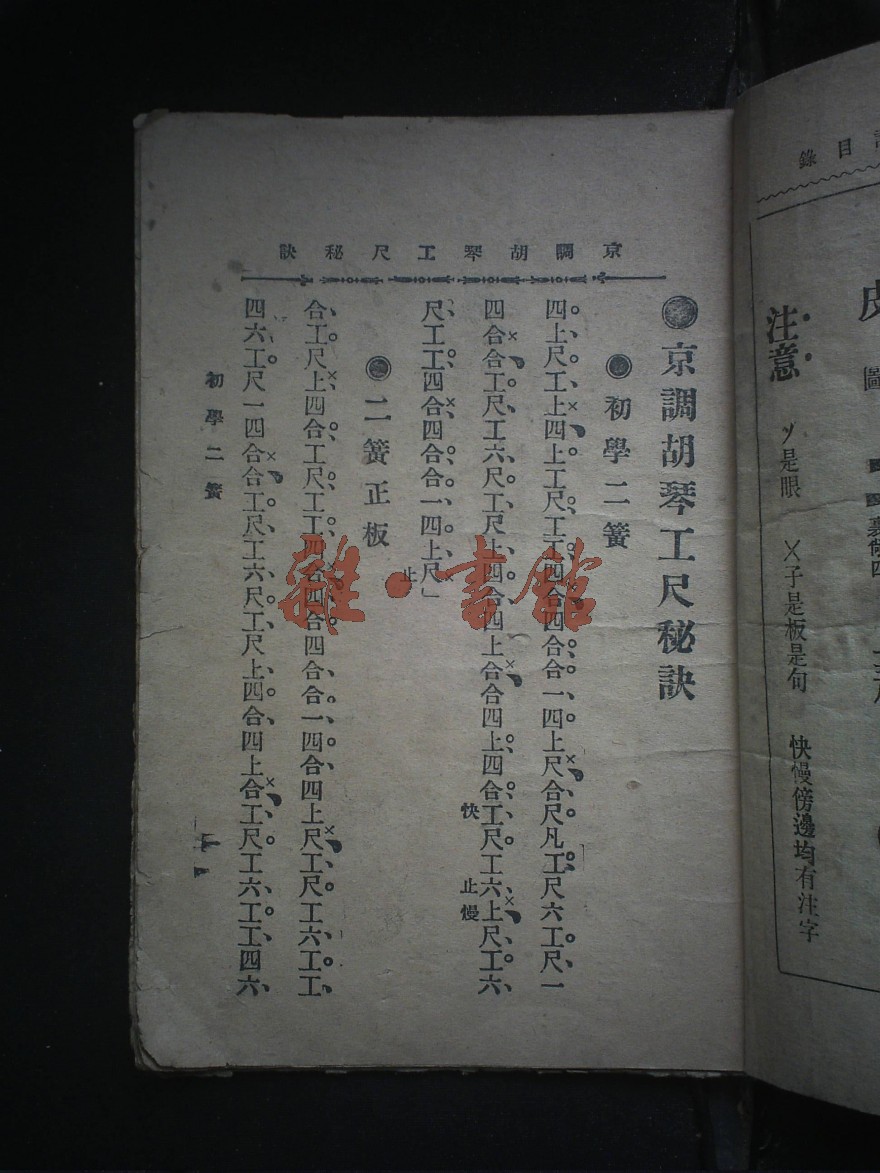 京調胡琴工尺秘訣
京調胡琴工尺秘訣
初學二簧
四上尺工上四上工尺工工四合四合合一四上尺合尺凡工尺六工尺一
四合合工尺工六尺工尺上四合四上合合四上四合工尺工六上尺工六
快
止慢
尺工工四合四合合一四上尺」
止
二簧正板
合工尺上四合工尺工工四合四合四合合一四合四上尺工尺工六工工
四六工尺一四合合工尺工六尺工尺上四合四上合工尺工六工工四六
初學二簧
雜·書館
目錄
注意
是眼
乂子是板是句
快慢傍邊均有注字
圖